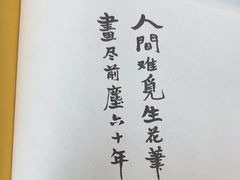 人間难覓生花筆
畫尽前塵六十年